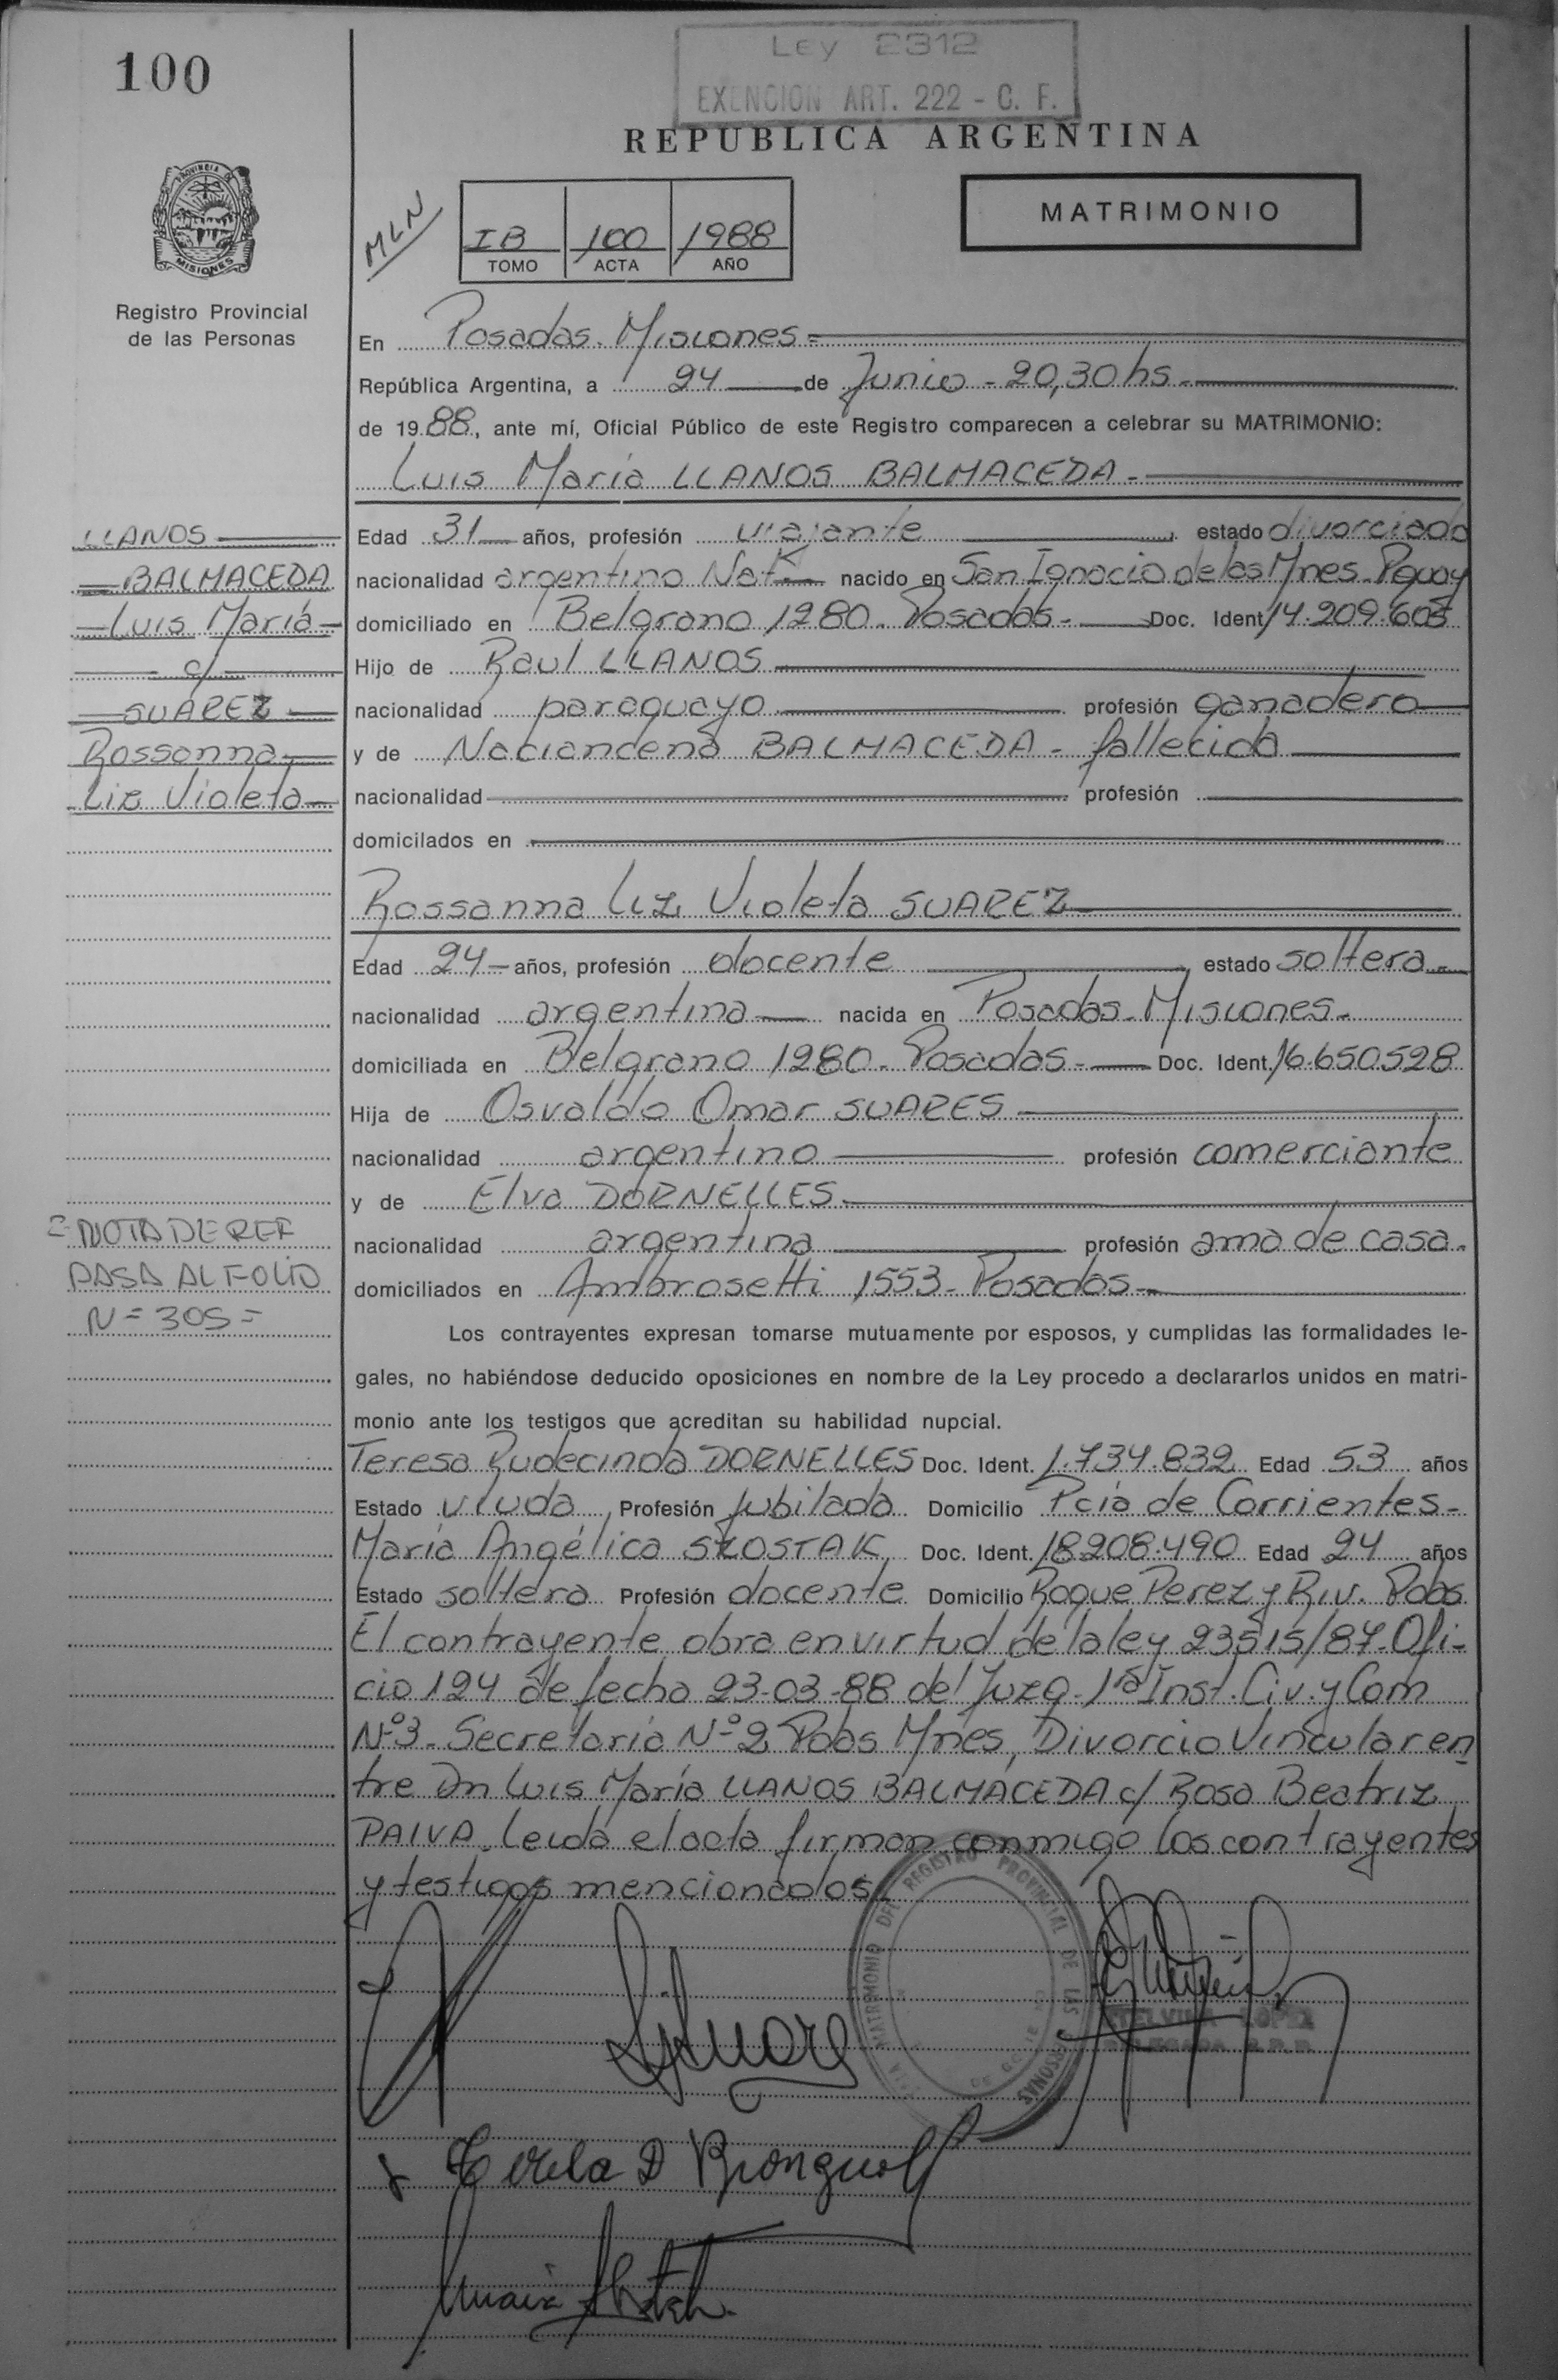 100
Ley 2312
EXENCION ART. 222 - C. F.
REPUBLICA ARGENTINA
PROVINCIA DE
MISIONES
Registro Provincial
de las Personas
MLN
IB 100 1988
TOMO ACTA AÑO
MATRIMONIO
En Posadas. Misiones=
República Argentina, a 24 de Junio - 20,30 hs -
de 19 88, ante mí, Oficial Público de este Registro comparecen a celebrar su MATRIMONIO:
Luis María LLANOS BALMACEDA -
LLANOS
BALMACEDA
Luis María
c/
SUAREZ
Rossanna
Liz Violeta
Edad 31 años, profesión viajante estado divorciado
nacionalidad argentino Nat. nacido en San Ignacio de las Mnes. Pguay
domiciliado en Belgrano 1280. Posadas - Doc. Ident 14.209.605
Hijo de Raul LLANOS
nacionalidad paraguayo profesión ganadero
y de Naciancena BALMACEDA - fallecida
nacionalidad profesión
domicilados en
Rossanna Liz Violeta SUAREZ
Edad 24 años, profesión docente estado soltera -
nacionalidad argentina nacida en Posadas - Misiones -
domiciliada en Belgrano 1280. Posadas - Doc. Ident. 16.650.528
Hija de Osvaldo Omar SUARES
nacionalidad argentino profesión comerciante
y de Elva DORNELLES
nacionalidad argentina profesión ama de casa.
domiciliados en Ambrosetti 1553 - Posadas -
NOTA DE REF
PASA AL FOLIO
N= 305=
Los contrayentes expresan tomarse mutuamente por esposos, y cumplidas las formalidades le-
gales, no habiéndose deducido oposiciones en nombre de la Ley procedo a declararlos unidos en matri-
monio ante los testigos que acreditan su habilidad nupcial.
Teresa Rudecinda DORNELLES Doc. Ident. 1.734.832 Edad 53 años
Estado viuda Profesión Jubilada Domicilio Pcia de Corrientes -
María Angélica SZOSTAK Doc. Ident. 18.208.490 Edad 24 años
Estado soltera Profesión docente Domicilio Roque Perez y Riv. Pdas
El contrayente obra en virtud de la ley 23515/87. Ofi-
cio 124 de fecha 23-03-88 del Juzg. 1ª Inst. Civ. y Com
Nº3 - Secretaría Nº 2 Pdas Mnes, Divorcio Vincular en
tre Dn Luis María LLANOS BALMACEDA c/ Rosa Beatriz
PAIVA. Leida el acta firman conmigo los contrayentes
y testigos mencionados
MATRIMONIO DEL REGISTRO PROVINCIAL DE LAS PERSONAS
LOPEZ